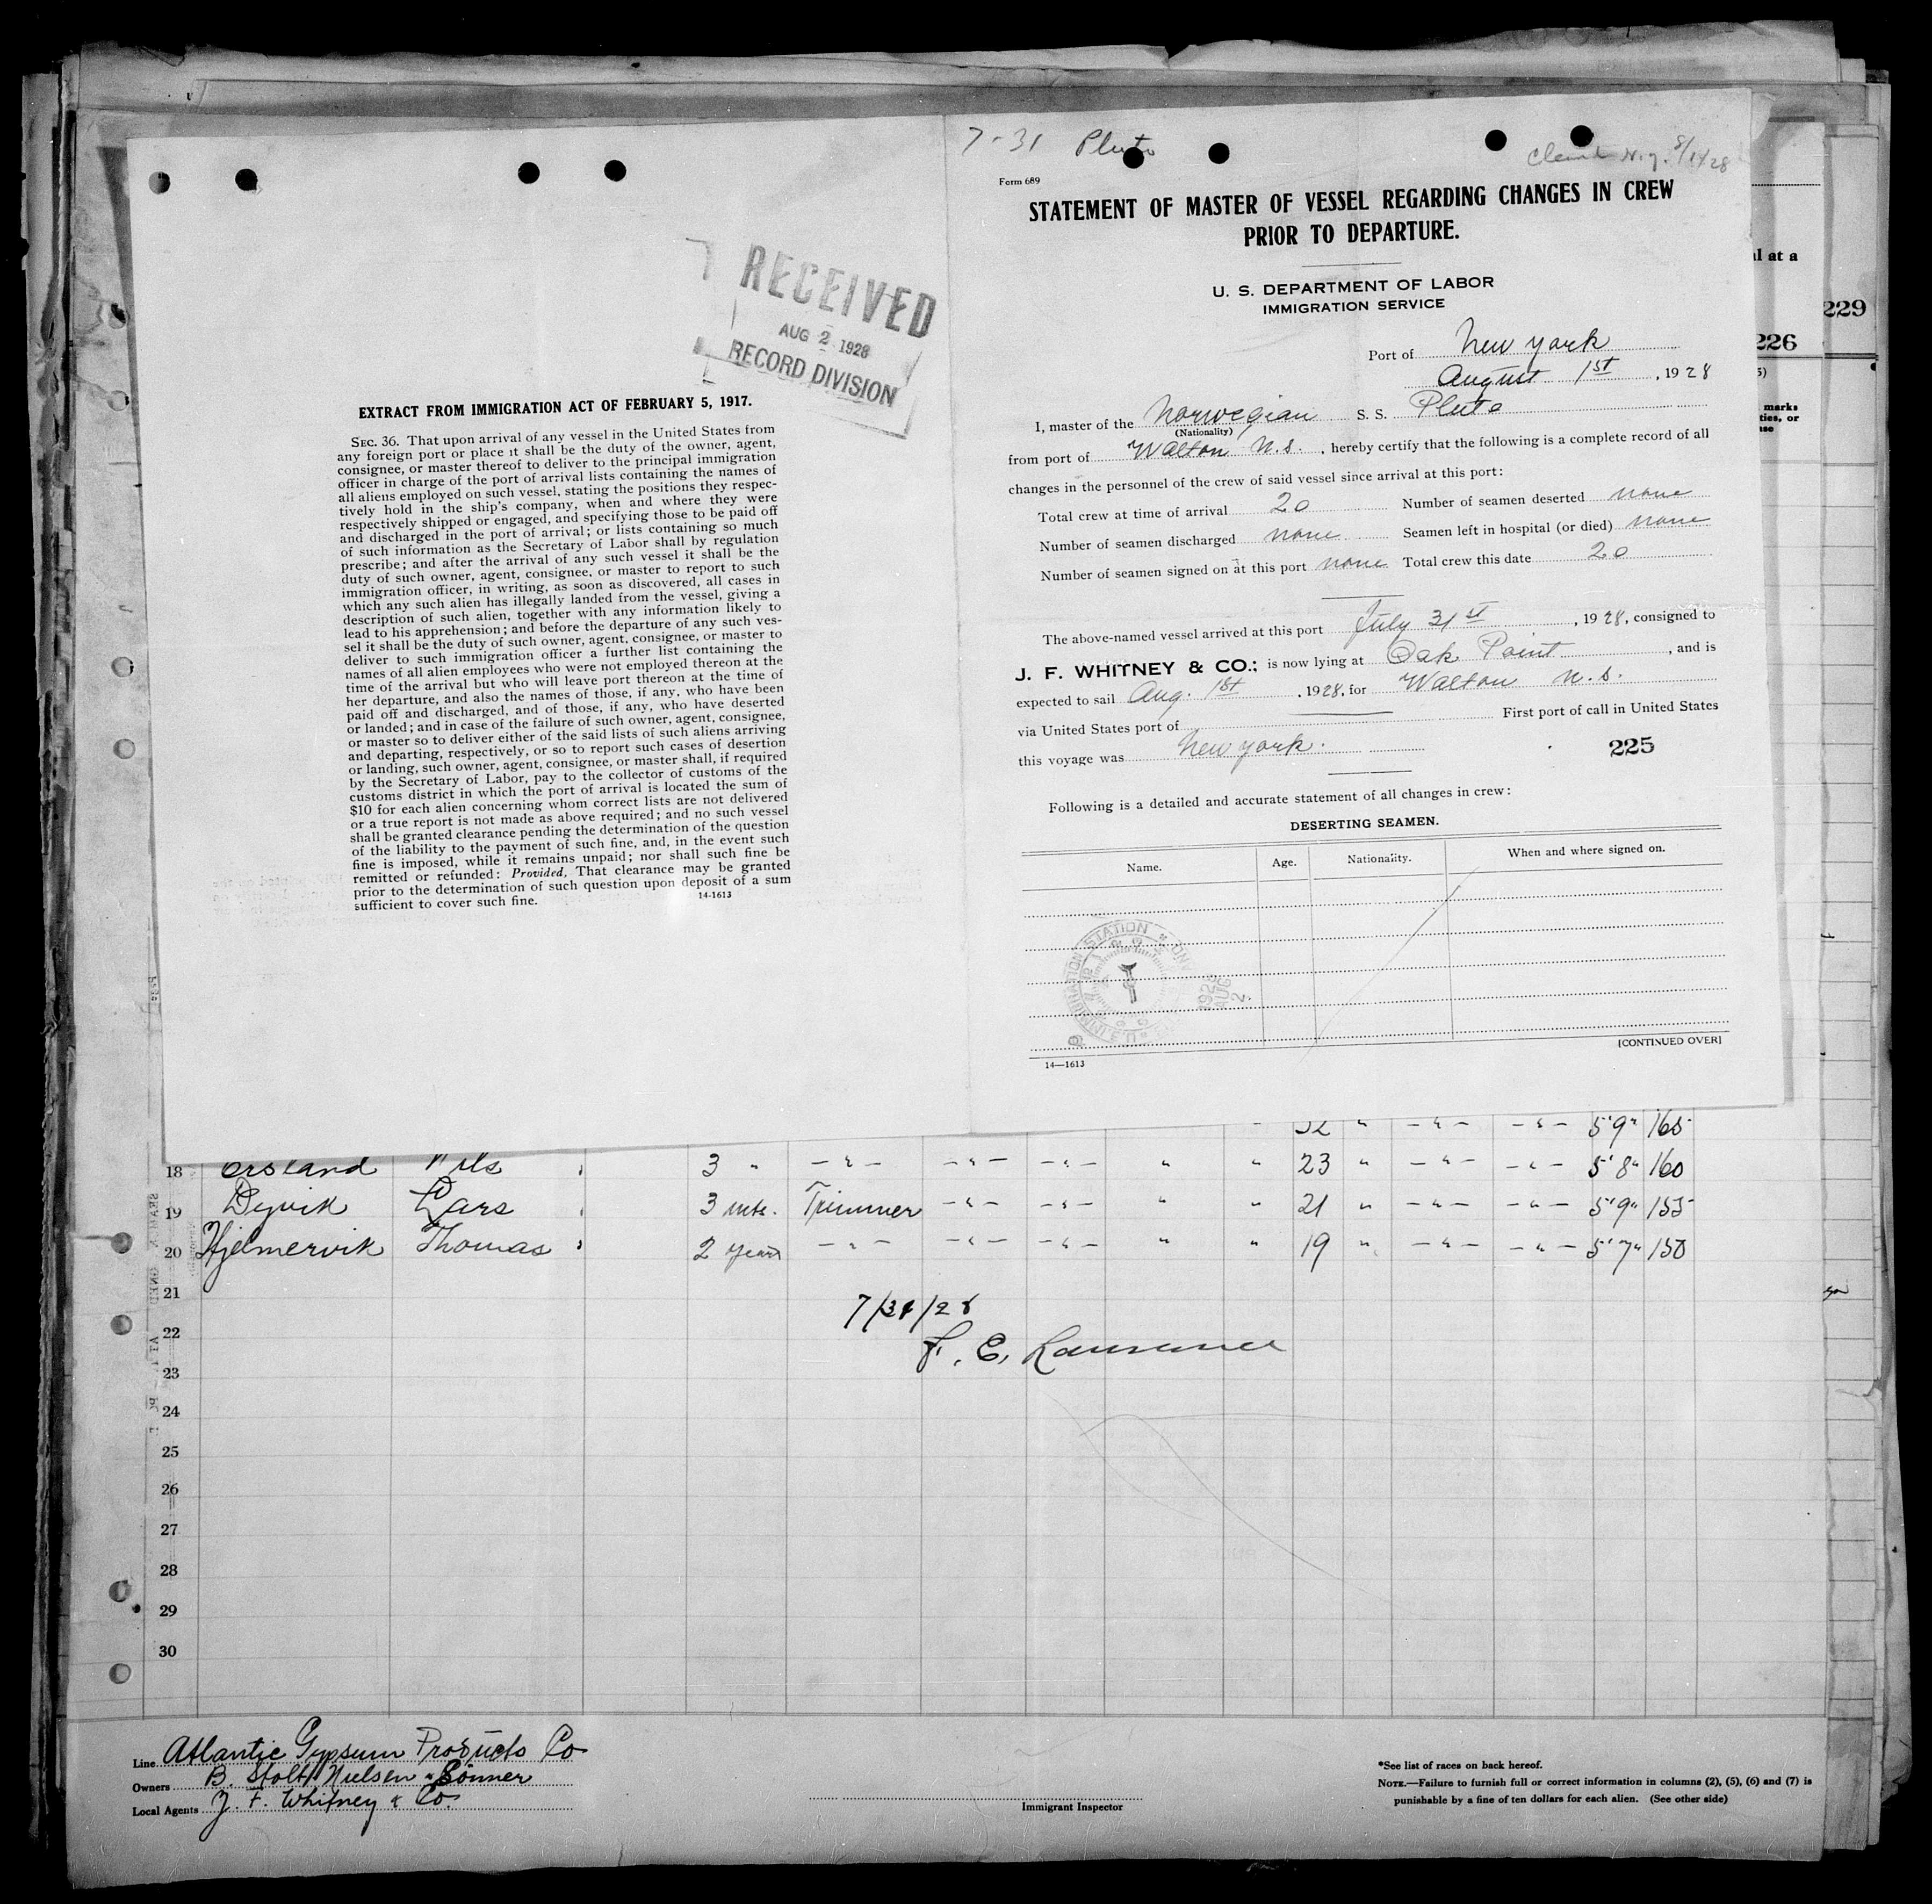 RECEIVED
AUG 2 1928
RECORD DIVISION
EXTRACT FROM IMMIGRATION ACT OF FEBRUARY 5, 1917.
SEC. 36. That upon arrival of any vessel in the United States from
any foreign port or place it shall be the duty of the owner, agent,
consignee, or master thereof to deliver to the principal immigration
officer in charge of the port of arrival lists containing the names of
all aliens employed on such vessel, stating the positions they respec-
tively hold in the ship's company, when and where they were
respectively shipped or engaged, and specifying those to be paid off
and discharged in the port of arrival; or lists containing so much
of such information as the Secretary of Labor shall by regulation
prescribe; and after the arrival of any such vessel it shall be the
duty of such owner, agent, consignee, or master to report to such
immigration officer, in writing, as soon as discovered, all cases in
which any such alien has illegally landed from the vessel, giving a
description of such alien, together with any information likely to
lead to his apprehension; and before the departure of any such ves-
sel it shall be the duty of such owner, agent, consignee, or master to
deliver to such immigration officer a further list containing the
names of all alien employees who were not employed thereon at the
time of the arrival but who will leave port thereon at the time of
her departure, and also the names of those, if any, who have been
paid off and discharged, and of those, if any, who have deserted
or landed; and in case of the failure of such owner, agent, consignee,
or master so to deliver either of the said lists of such aliens arriving
and departing, respectively, or so to report such cases of desertion
or landing, such owner, agent, consignee, or master shall, if required
by the Secretary of Labor, pay to the collector of customs of the
customs district in which the port of arrival is located the sum of
$10 for each alien concerning whom correct lists are not delivered
or a true report is not made as above required; and no such vessel
shall be granted clearance pending the determination of the question
of the liability to the payment of such fine, and, in the event such
fine is imposed, while it remains unpaid; nor shall such fine be
remitted or refunded: Provided, That clearance may be granted
prior to the determination of such question upon deposit of a sum
sufficient to cover such fine.
14-1613
7-31 Pluto
N.Y. 8/1/28
Form 689
STATEMENT OF MASTER OF VESSEL REGARDING CHANGES IN CREW
PRIOR TO DEPARTURE.
U. S. DEPARTMENT OF LABOR
IMMIGRATION SERVICE
Port of New York
August 1st, 1928
I, master of the Norwegian S. S. Pluto
(Nationality)
from port of Walton N.S., hereby certify that the following is a complete record of all
changes in the personnel of the crew of said vessel since arrival at this port:
Total crew at time of arrival 20 Number of seamen deserted none
Number of seamen discharged none Seamen left in hospital (or died) none
Number of seamen signed on at this port none Total crew this date 20
The above-named vessel arrived at this port July 31st, 1928, consigned to
J. F. WHITNEY & CO.; is now lying at Oak Point, and is
expected to sail Aug. 1st, 1928, for Walton N.S.
via United States port of First port of call in United States
this voyage was New York.
225
Following is a detailed and accurate statement of all changes in crew:
DESERTING SEAMEN.
Name. Age. Nationality. When and where signed on.
1928
AUG
2
[CONTINUED OVER]
14—1613
l at a
229
226
5)
marks
ties, or
se
32 " - " - - " - 5'9" 165
18 Ersland Nils 3 " - " - - " - - " - " " 23 " - " - - " - 5'8" 160
19 Dyvik Lars 3 mts. Trimmer - " - - " - " " 21 " - " - - " - 5'9" 155
20 Hjelmervik Thomas 2 years - " - - " - - " - " " 19 " - " - - " - 5'7" 150
21
7/31/28
22
F. E. Lawrence
23
24
25
26
27
28
29
30
Line Atlantic Gypsum Products Co
Owners B. Stolt Nielsen & Sönner
Local Agents J. F. Whitney & Co.
Immigrant Inspector
*See list of races on back hereof.
NOTE.—Failure to furnish full or correct information in columns (2), (5), (6) and (7) is
punishable by a fine of ten dollars for each alien. (See other side)